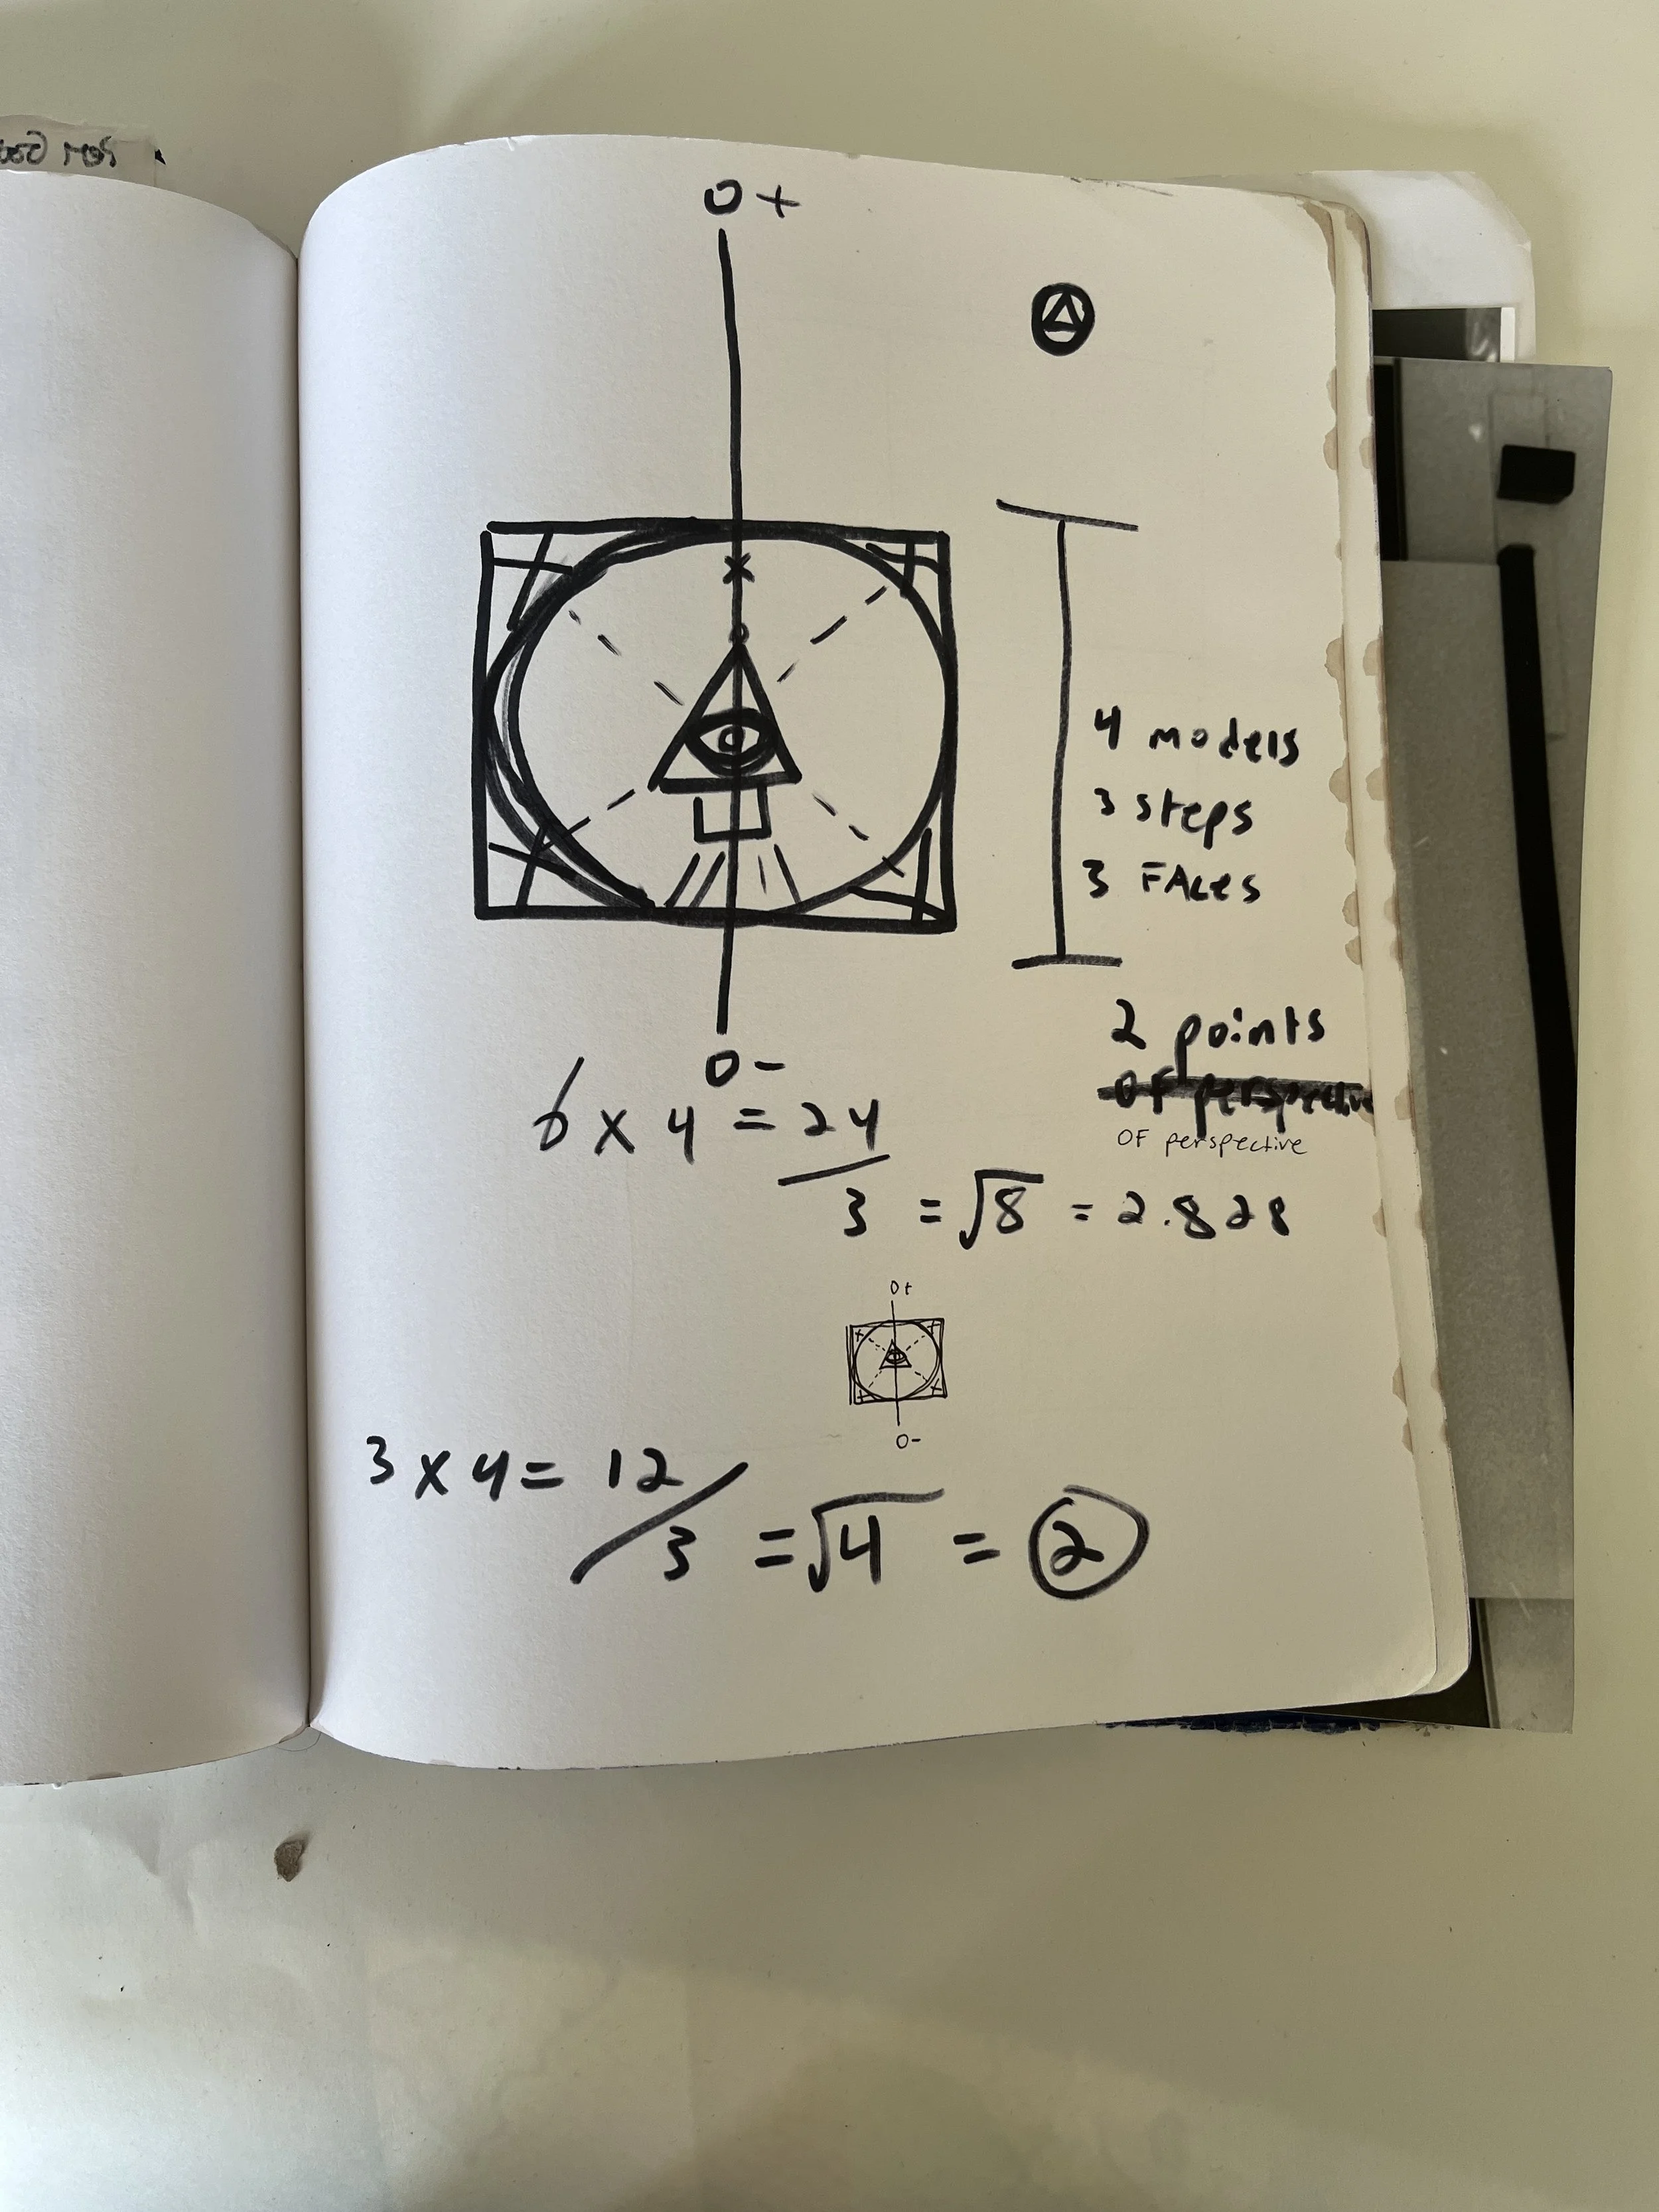 0+
x
4 models
3 steps
3 FACes
2 points
OF perspective
OF perspective
0-
6 x 4 = 24
3 = √8 = 2.828
0+
0-
3 x 4 = 12
/3 = √4 = 2